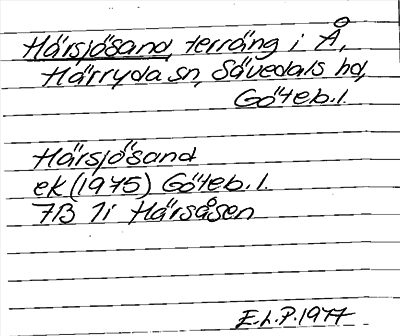 Härsjösand, terräng i Å,
Härryda sn, Sävedals hd,
Göteb. l.
Härsjösand
ek (1975) Göteb. l.
7B 7i Härsåsen
E.L.P. 1977